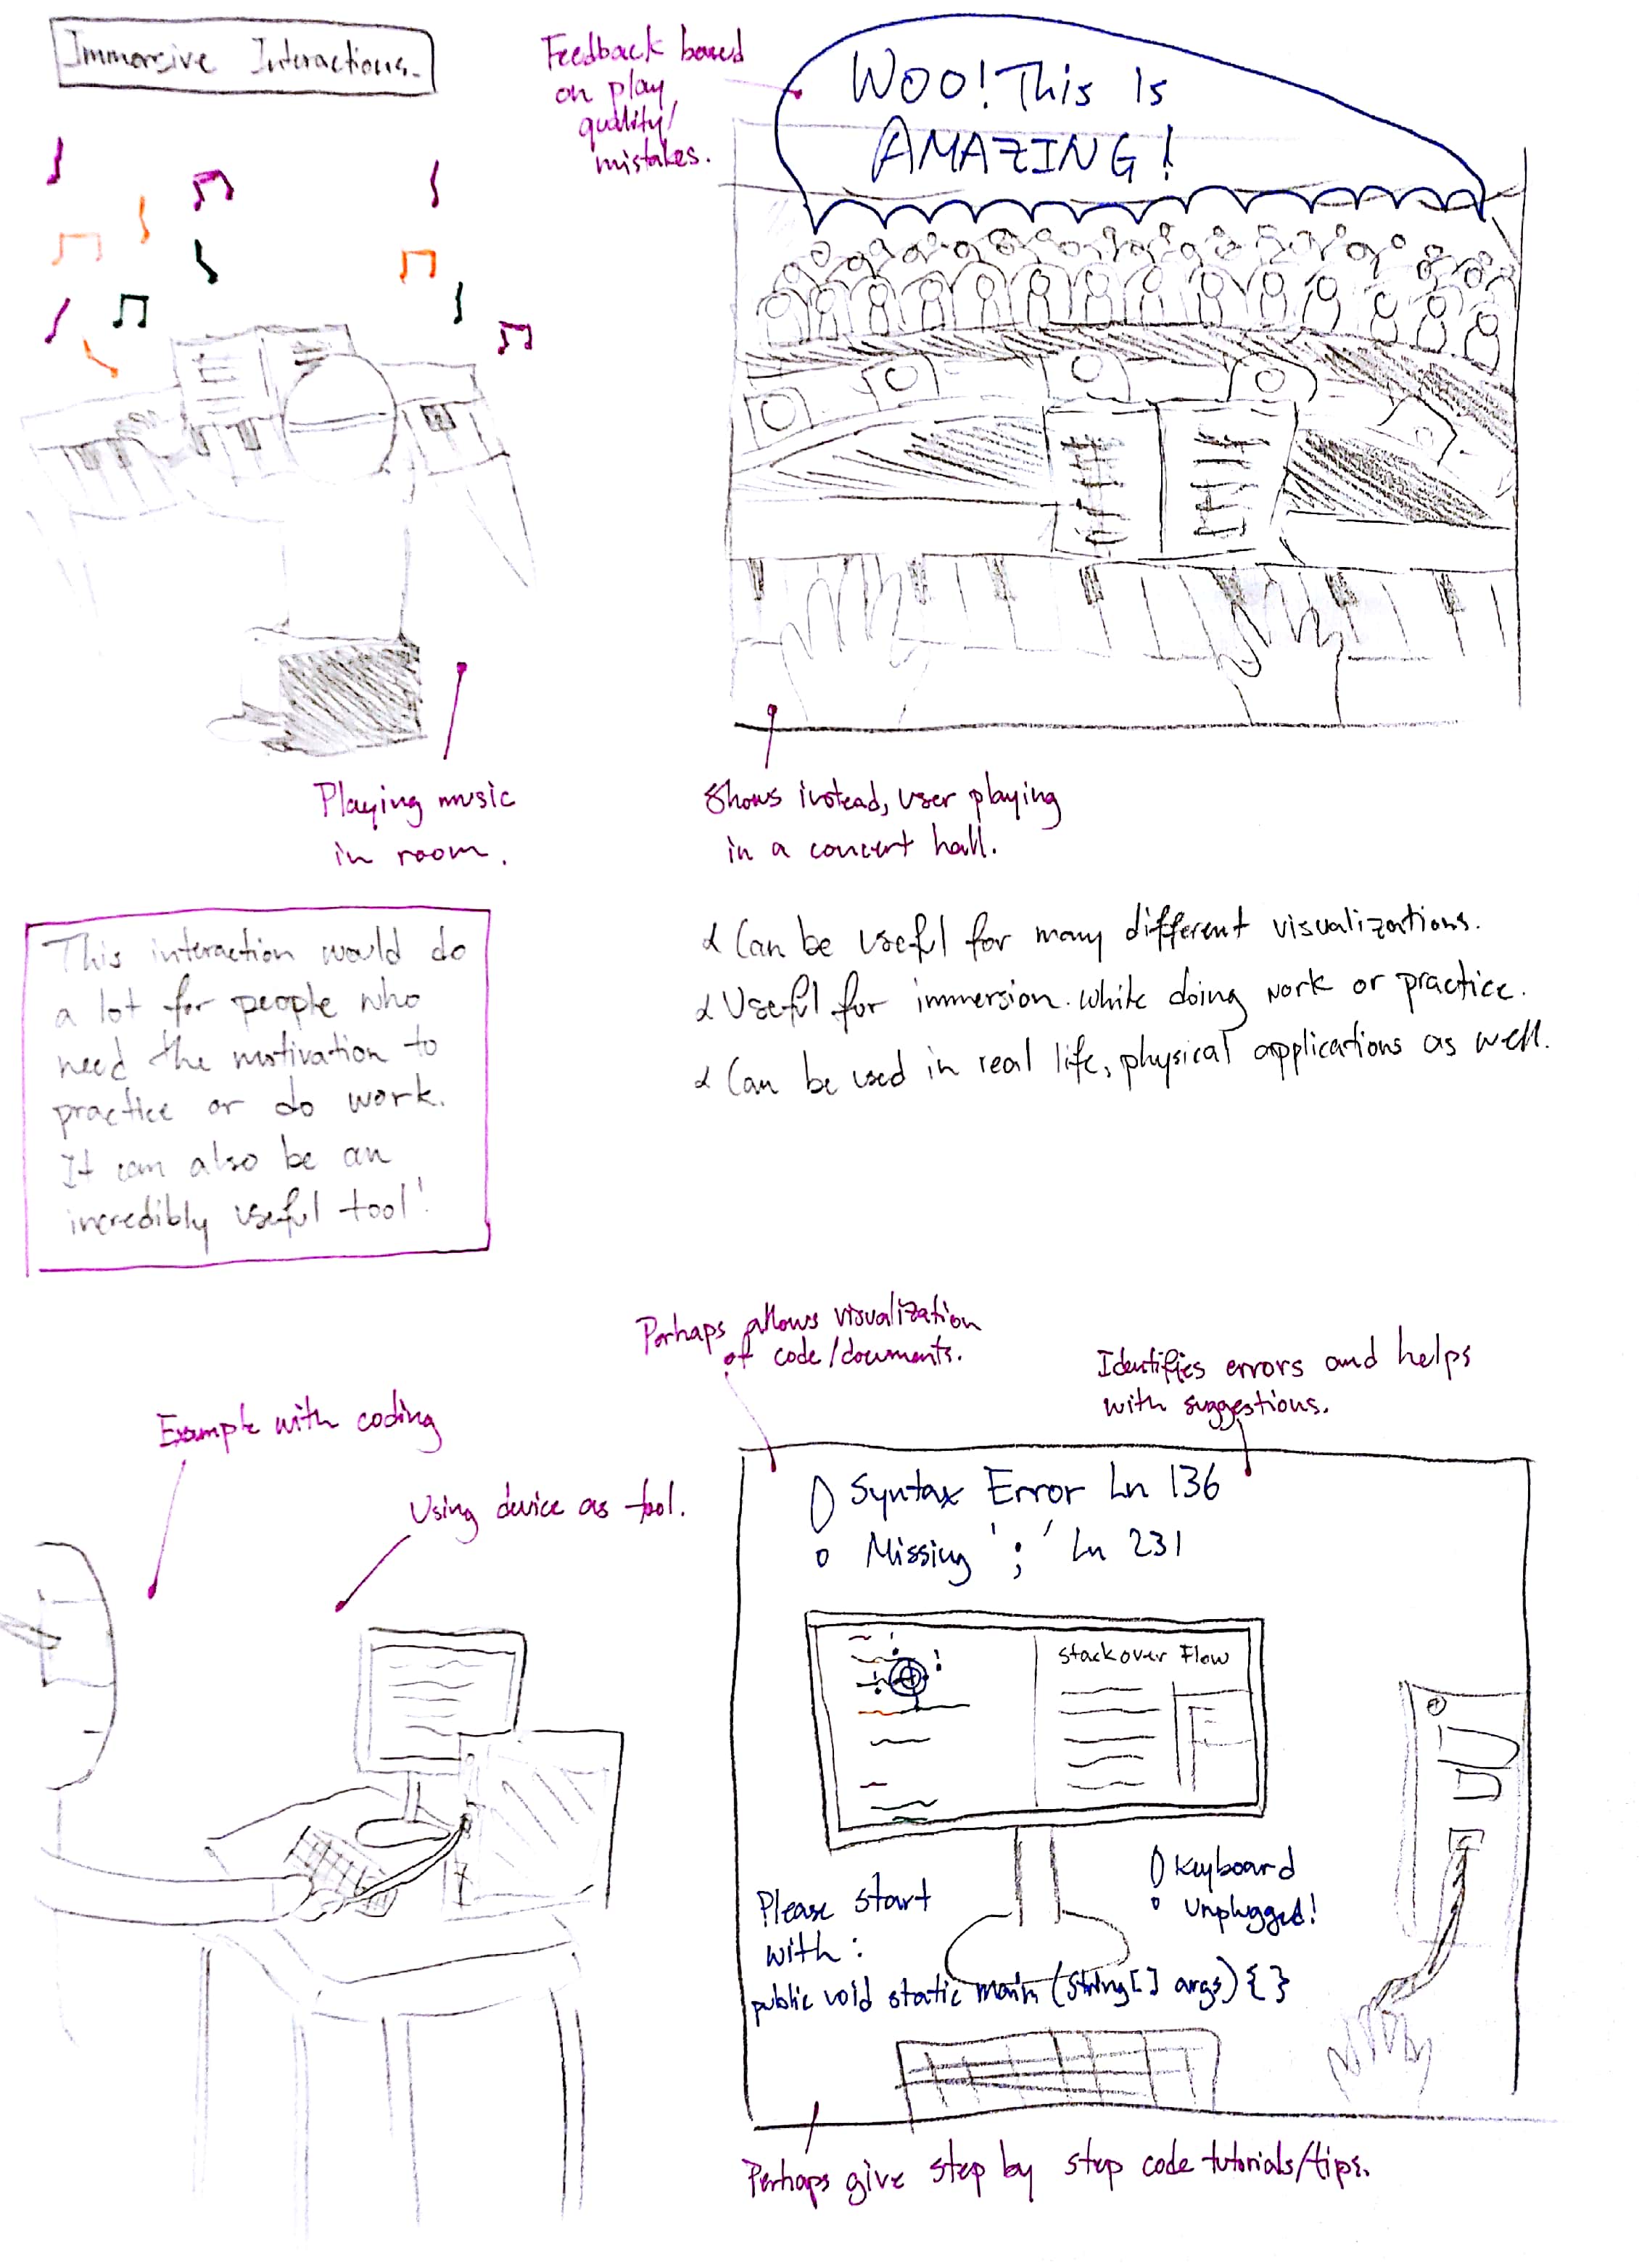 Immersive Interactions.
Feedback based
on play
quality/
mistakes.
WOO! This is
AMAZING!
Playing music
in room.
Shows instead, user playing
in a concert hall.
This interaction would do
a lot for people who
need the motivation to
practice or do work.
It can also be an
incredibly useful tool!
Can be useful for many different visualizations.
Useful for immersion while doing work or practice.
Can be used in real life, physical applications as well.
Perhaps allows visualization
of code/documents.
Identifies errors and helps
with suggestions.
Example with coding
Using device as tool.
Syntax Error Ln 136
Missing ';' Ln 231
Stackover Flow
Keyboard
Unplugged!
Please start
with:
public void static main (String[] args) { }
Perhaps give step by step code tutorials/tips.